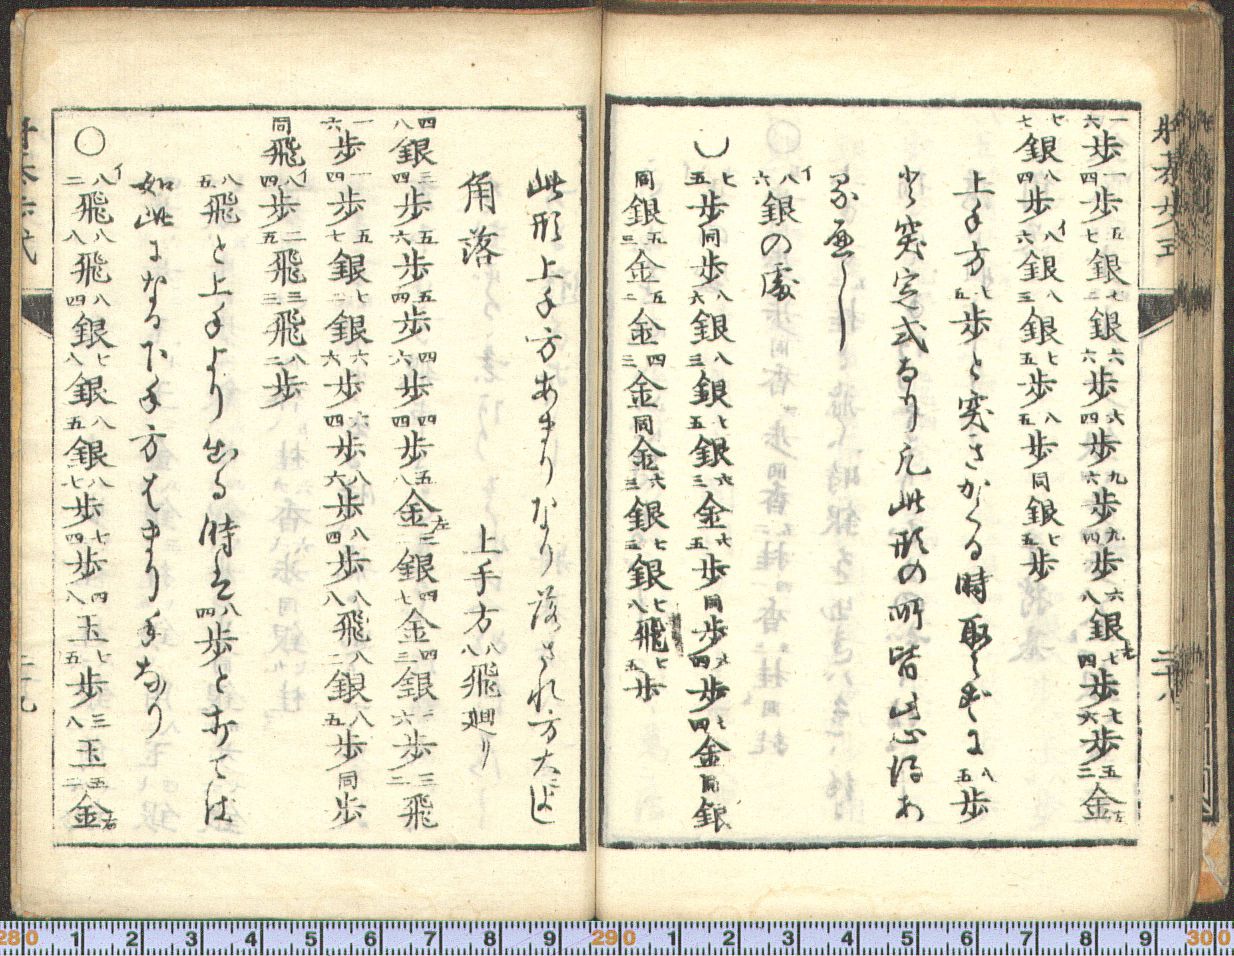 一六歩 一四歩 五七銀 七二銀 六六歩 六四歩 九六歩 九四歩 六八銀左 七四歩 七六歩 五三金左
七七銀 八四歩 八六銀イ 八三銀 七五歩 八五歩 同銀 七五歩
上手方七五歩と突きかくる時取らずに八五歩
と突定式なり凡此形の所皆此心得あ
るべし
イ八六銀の処
七五歩 同歩 八六銀 八三銀 七五銀 六三金 六五歩 同歩 六四歩 七四金 同銀
同銀 五三金 五二金 四三金 同金 六三銀 七二銀 七八飛 七五歩
此形上手方あまりなり落され方大によし
角落 上手方八八飛廻り
四八銀 三四歩 五六歩 五四歩 四六歩 四四歩 五八金左 三二銀 四七金 四三銀 一六歩 三二飛
一六歩 一四歩 五七銀 七二銀 六六歩 六四歩 八六歩 八四歩 八八飛 八二銀 八五歩 同歩
同飛 八四歩イ 二五飛 三三飛 八二歩
八五飛と上手より出る時は八四歩と打てば
如此になる下手方はまり手なり
○ イ八二飛 八八飛 八四銀 七八銀 八五銀 八七歩 七四歩 四八玉 七五歩 三八玉 五二金右
将棊歩式
二十八
二十九
280 1 2 3 4 5 6 7 8 9 290 1 2 3 4 5 6 7 8 9 300